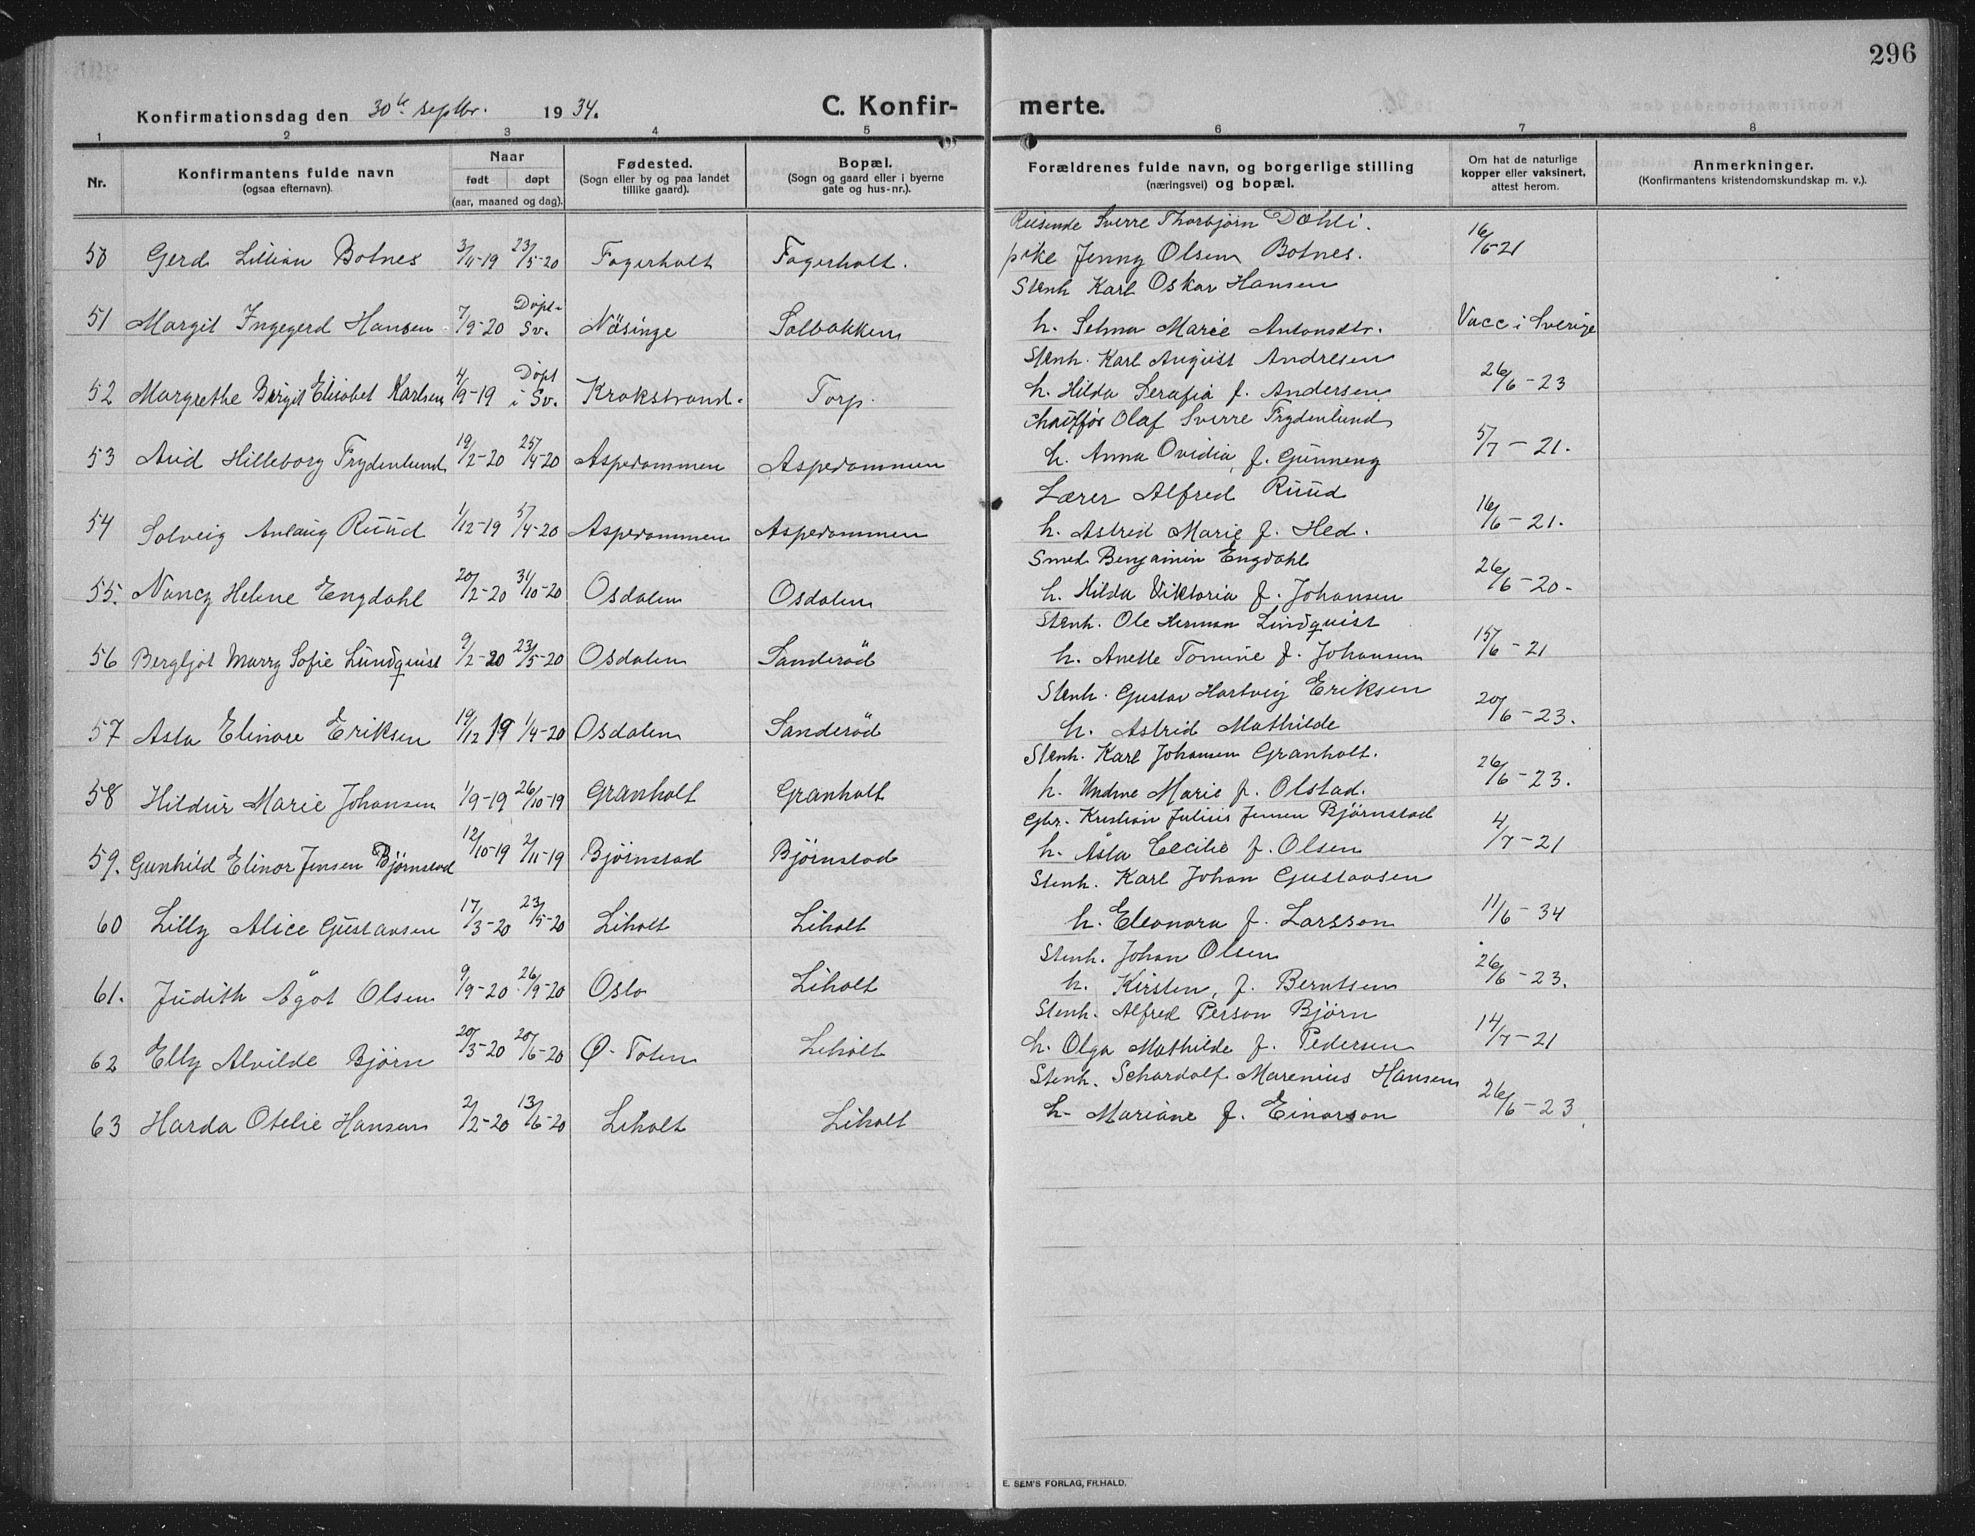 296
Konfirmationsdag den 30te septbr. 1934.
C. Konfir- merte.
1 2 3 4 5 6 7 8
Nr.
Konfirmantens fulde navn
(ogsaa efternavn).
Naar
født døpt
(aar, maaned og dag).
Fødested.
(Sogn eller by og paa landet
tillike gaard).
Bopæl.
(Sogn og gaard eller i byerne
gate og hus-nr.).
Forældrenes fulde navn, og borgerlige stilling
(næringsvei) og bopæl.
Om hat de naturlige
kopper eller vaksinert,
attest herom.
Anmerkninger.
(Konfirmantens kristendomskundskap m. v.).
Reisende Sverre Thorbjørn Dæhli.
50 Gerd Lillian Botnes 3/11-19 23/5-20 Fagerholt Fagerholt. pike Jenny Olsen Botnes. 16/6-21
Stenh Karl Oskar Hansen
51 Margit Ingegerd Hansen 7/9-20 Døpt Sv. Näsinge Solbakken h. Selma Marie Antonsdtr. Vacc i Sverige
Stenh. Karl August Andresen
52 Margrethe Birgit Elisabet Karlsen 4/9-19 Døpt i Sv. Krokstrand. Torp. h. Hilda Serafia f. Andersen 26/6-23
Chauffør Olaf Sverre Frydenlund
53 Aud Hilleborg Frydenlund 19/2-20 25/4-20 Aspedammen Aspedammen h. Anna Ovidia, f. Gunneng 5/7-21.
Lærer Alfred Ruud
54 Solveig Anlaug Ruud 1/12-19 5/4-20 Aspedammen Aspedammen h. Astrid Marie f. Hed. 16/6-21.
Smed Benjamin Engdahl
55. Nancy Helene Engdahl 20/2-20 31/10-20 Osdalen Osdalen h. Hilda Viktoria f. Johansen 26/6-20-
Stenh. Ole Herman Lindquist
56 Bergljot Marry Sofie Lundquist 9/2-20 23/5-20 Osdalen Sanderöd h. Anette Tomine f. Johansen 15/6-21
Stenh. Gustav Hartvig Eriksen
57 Asta Elinore Eriksen 19/12 19 1/4-20 Osdalen Sanderöd h. Astrid Mathilde 20/6-23.
Stenh. Karl Johansen Granholt.
58 Hildur Marie Johansen 1/9-19 26/10-19 Granholt Granholt h. Undine Marie f. Olstad. 26/6-23.
Gbr. Kristian Julius Jensen Bjørnstad
59. Gunhild Elinor Jensen Bjørnstad 12/10-19 2/11-19 Bjørnstad Bjørnstad h. Åsta Cecilie f. Olsen 4/7-21
Stenh. Karl Johan Gustavsen
60 Lilly Alice Gustavsen 17/3-20 23/5-20 Liholt Liholt h. Eleonora f. Larsson 11/6-34
Stenh. Johan Olsen
61. Judith Ågot Olsen 9/9-20 26/9-20 Oslo Liholt h. Kirsten, f. Berntsen 26/6-23.
Stenh. Alfred Person Bjørn
62 Elly Alvilde Bjørn 20/3-20 20/6-20 Ø. Toten Liholt h. Olga Mathilde f. Pedersen 14/7-21
Stenh. Schardolf Marenius Hansen
63 Harda Otelie Hansen 2/2-20 13/6-20 Liholt Liholt h. Mariane f. Einarson 26/6-23
E. SEM'S FORLAG, FR.HALD.